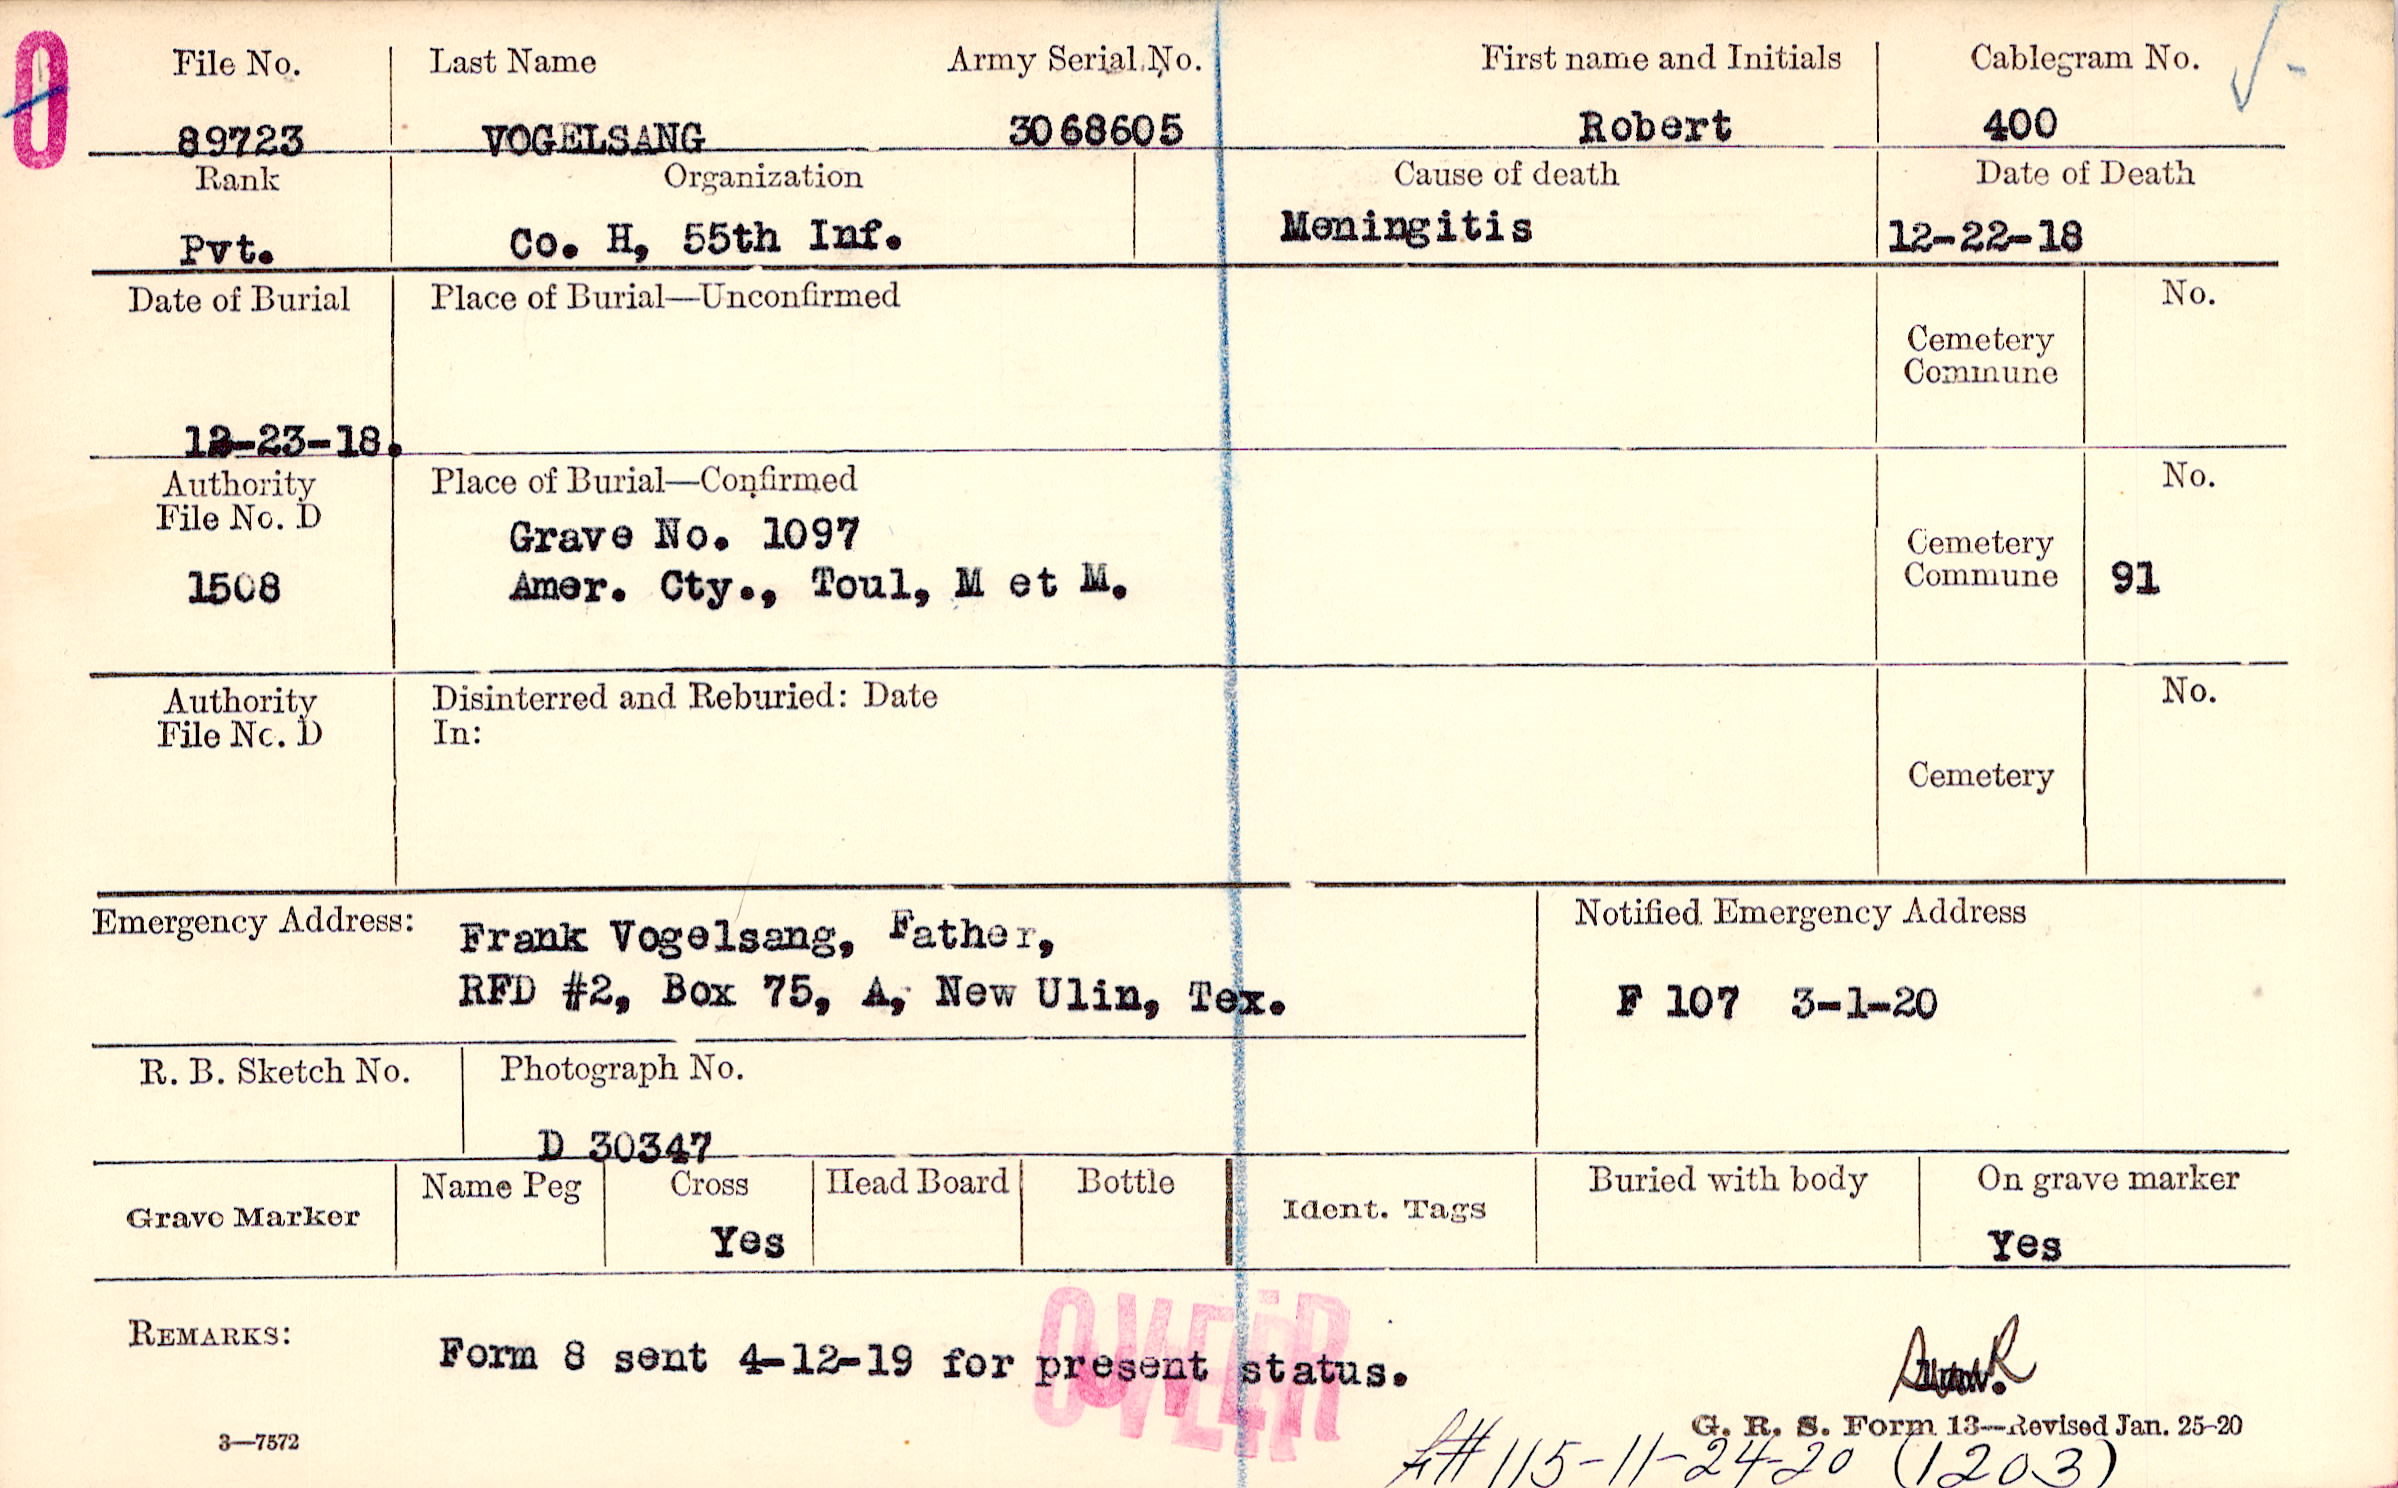 0
File No.
Last Name
Army Serial No.
First name and Initials
Cablegram No.
89723
VOGELSANG
3068605
Robert
400
Rank
Organization
Cause of death
Date of Death
Pvt.
Co. H, 55th Inf.
Meningitis
12-22-18
Date of Burial
Place of Burial—Unconfirmed
Cemetery
Commune
No.
12-23-18.
Authority
File No. D
1508
Place of Burial—Confirmed
Grave No. 1097
Amer. Cty., Toul, M et M.
Cemetery
Commune
No.
91
Authority
File No. D
Disinterred and Reburied: Date
In:
Cemetery
No.
Emergency Address:
Frank Vogelsang, Father,
RFD #2, Box 75, A, New Ulin, Tex.
Notified Emergency Address
F 107 3-1-20
R. B. Sketch No.
Photograph No.
D 30347
Grave Marker
Name Peg
Cross
Yes
Head Board
Bottle
Ident. Tags
Buried with body
On grave marker
Yes
REMARKS:
Form 8 sent 4-12-19 for present status.
OVER
3—7572
G. R. S. Form 13—Revised Jan. 25-20
#115-11-24-20 (1203)